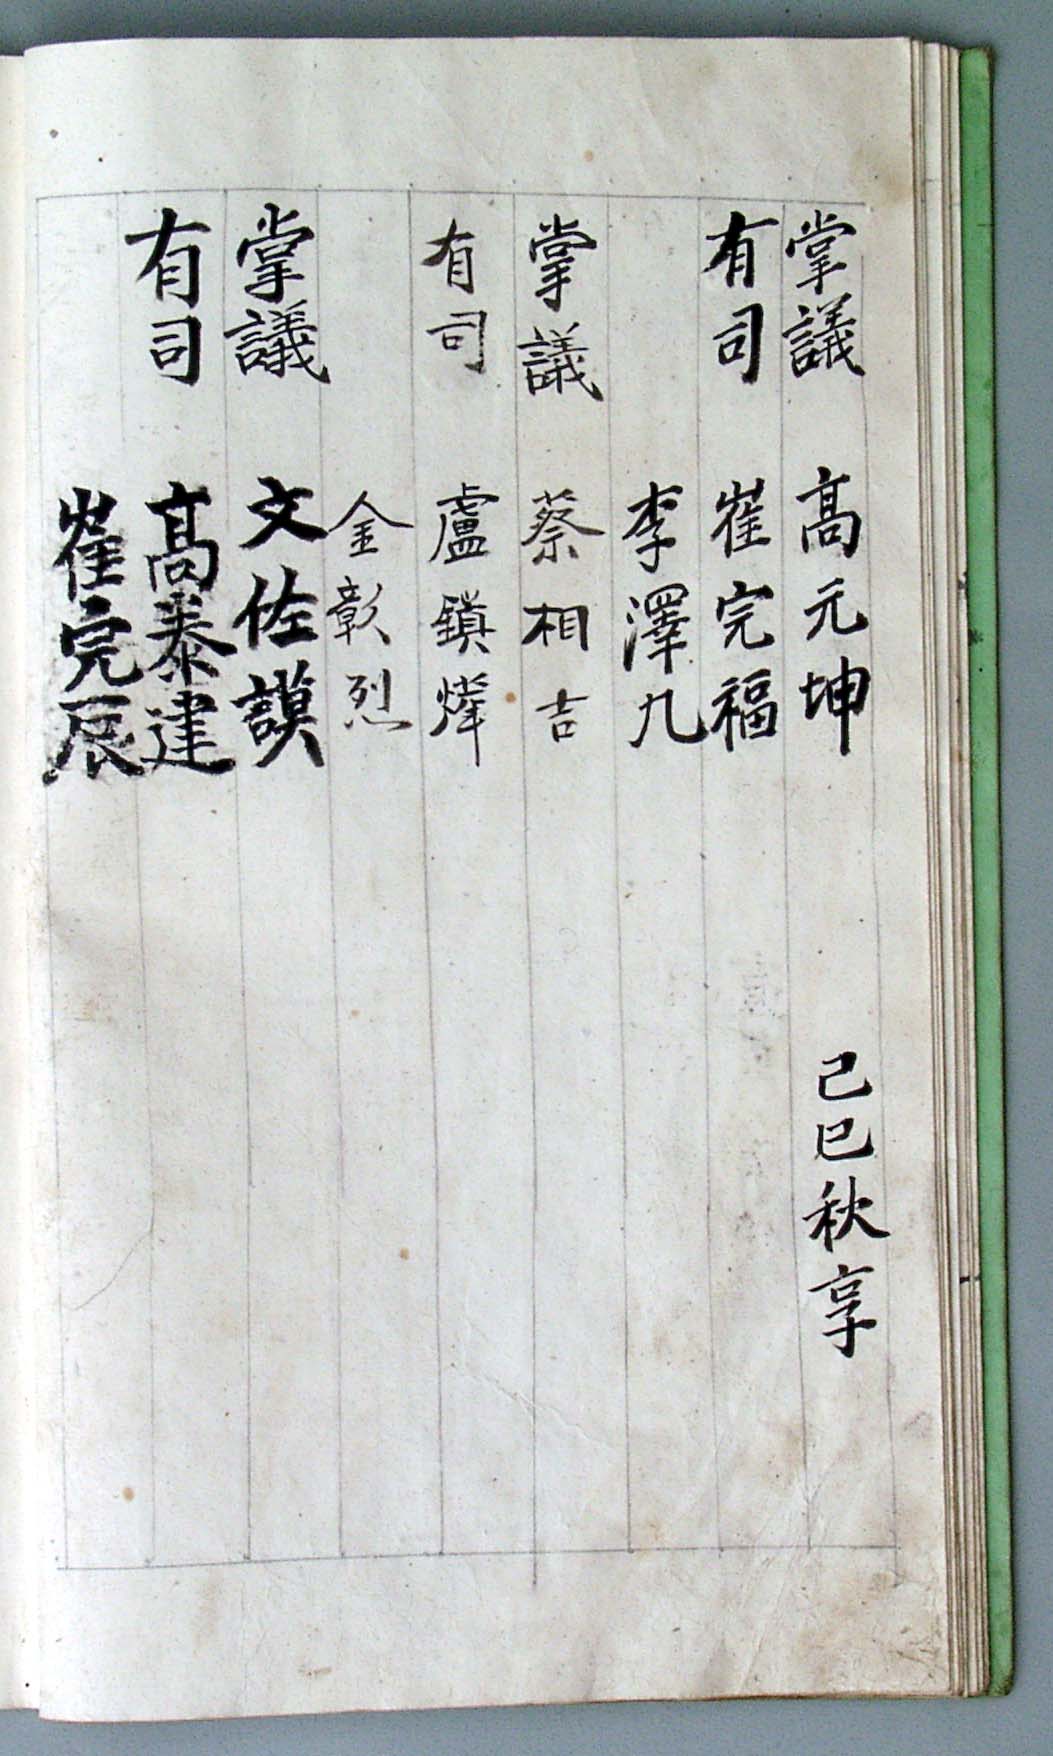 掌議 高元坤 己巳秋享
有司 崔完福
李澤九
掌議 蔡相吉
有司 盧鎭燁
金彰烈
掌議 文佐謨
有司 高泰建
崔完辰